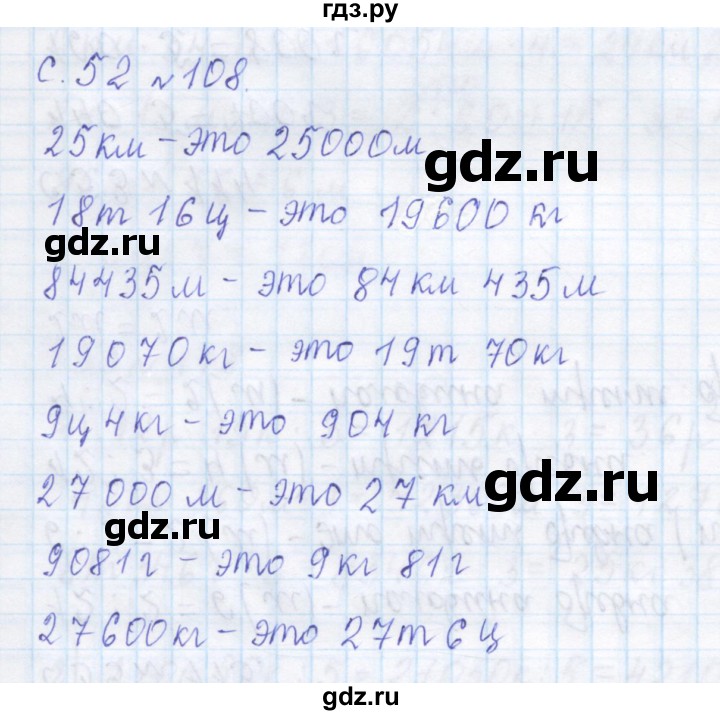 гдз.ру
с. 52 №108.
25км – это 25000м
gdz.ru
18т 16ц – это 19600 кг
gdz.ru
84435м – это 84км 435м
19070кг – это 19т 70кг
9ц 4кг – это 904 кг
27000м – это 27 км
gdz.ru
gdz.ru
9081г – это 9кг 81г
27600кг – это 27т 6ц
gdz.ru